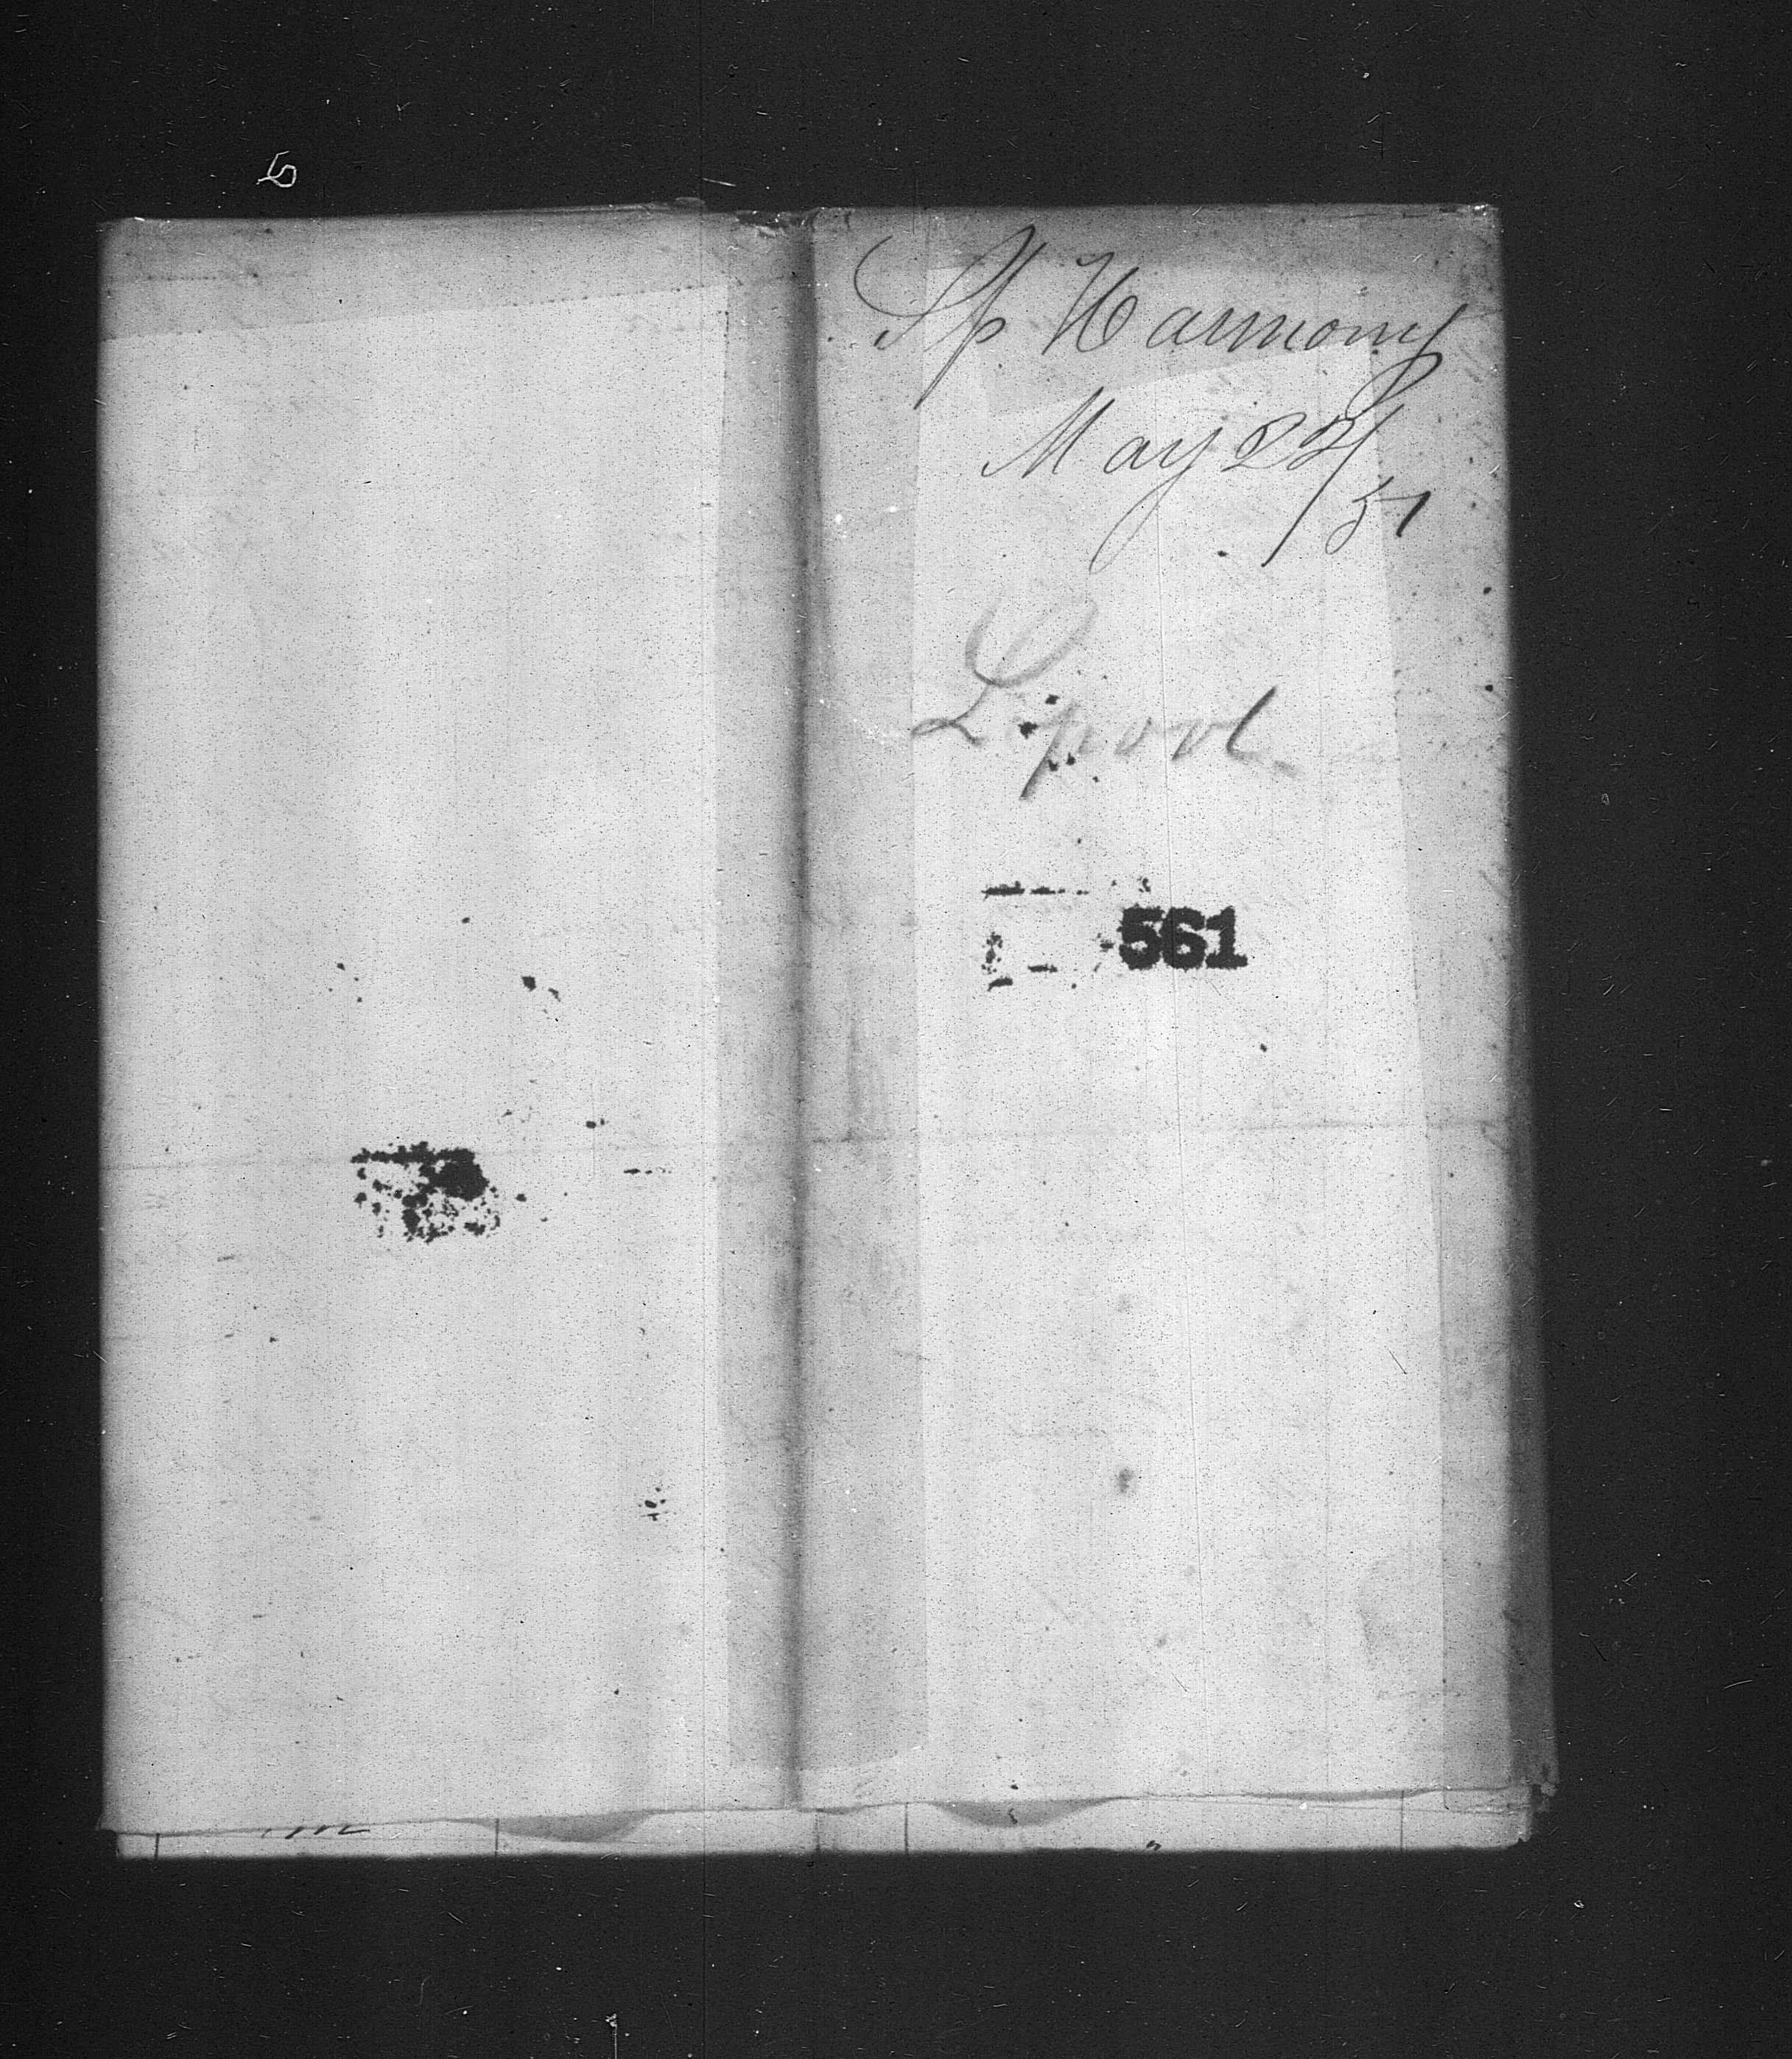 Sp Harmony
May 22/
51
L.pool
561